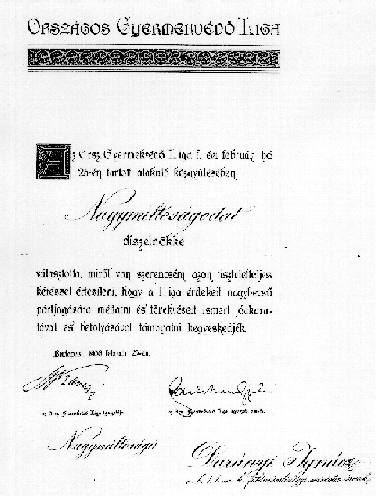 ORSZÁGOS GYERMEKVÉDŐ LIGA
Az Orsz. Gyermekvédő Liga f. évi február hó
25-én tartott alakuló közgyűlésében
Nagyméltóságodat
díszelnökké
választotta, miről van szerencsém azon tiszteletteljes
kéréssel értesíteni, hogy a Liga érdekeit nagybecsű
pártfogására méltatni és törekvéseit ismert jóakara-
tával és befolyásával támogatni kegyeskedjék.
Budapest, 1906 február
az Orsz. Gyermekvédő Liga
az Orsz. Gyermekvédő Liga
Nagyméltóságú
Darányi Ignácz